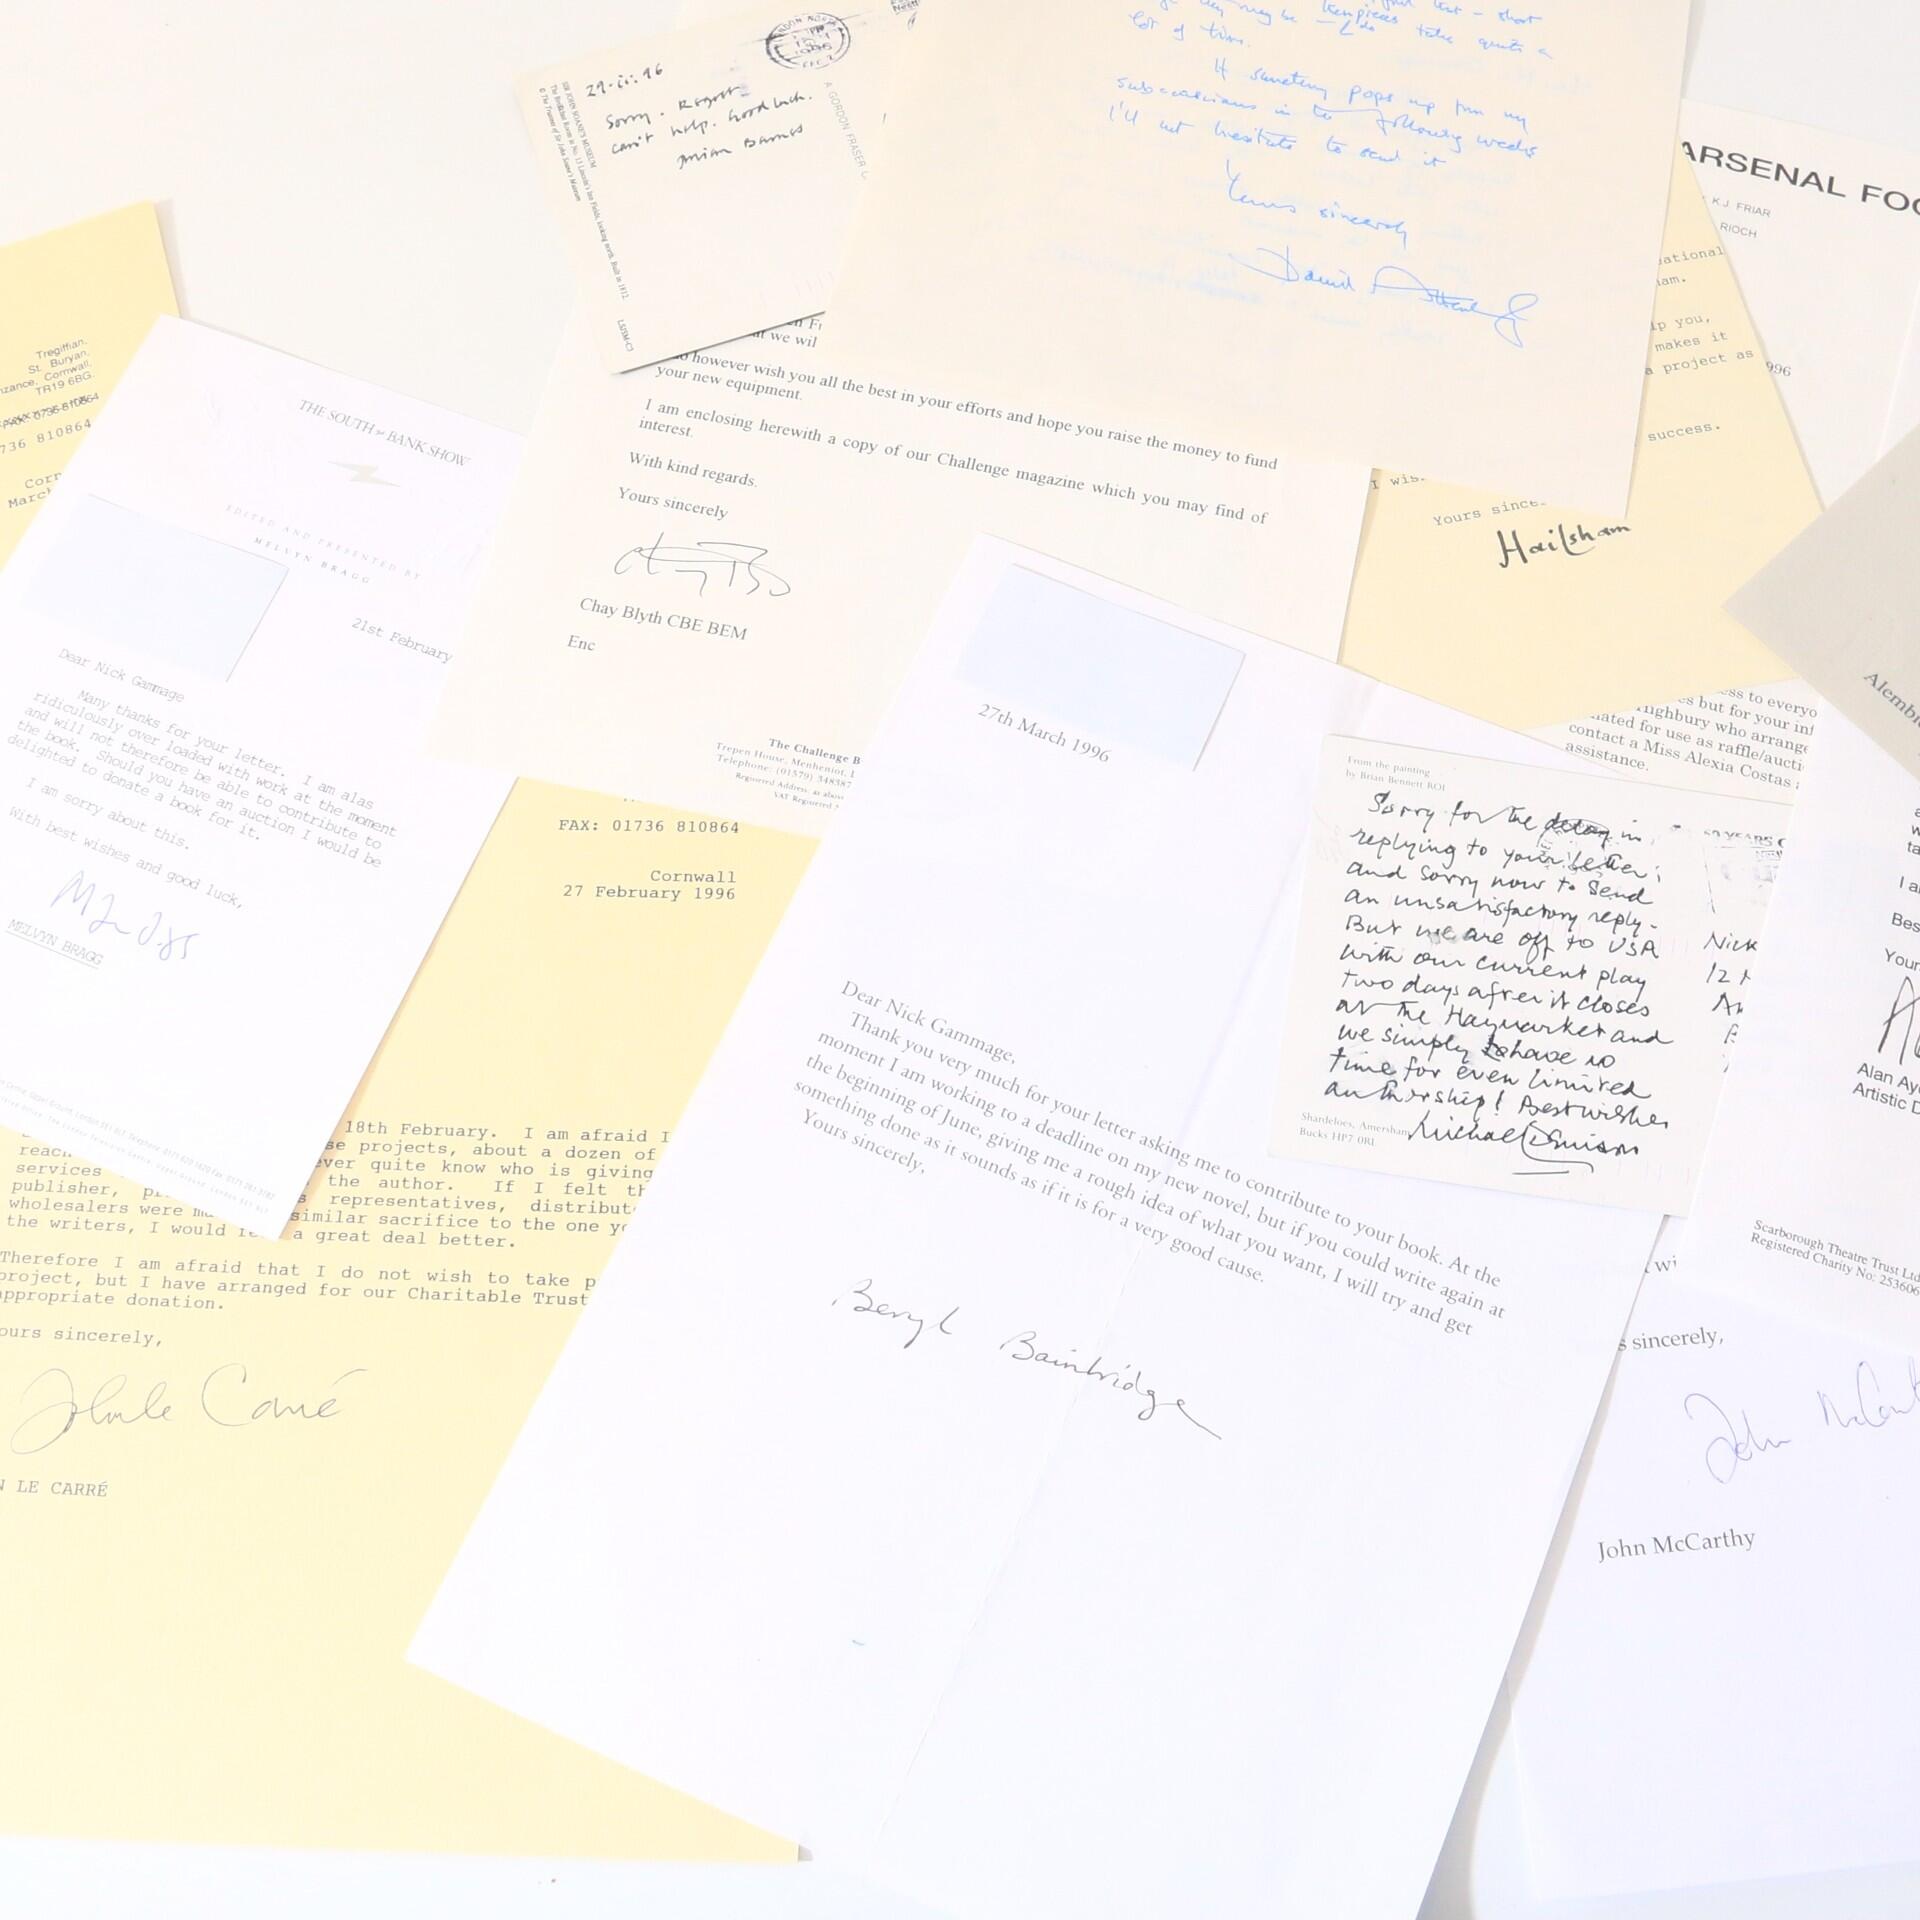 29.ii.96
Sorry. Regret
can't help. Good luck.
Julian Barnes
SIR JOHN SOANE'S MUSEUM
The Breakfast Room in No. 13 Lincoln's Inn Fields, looking north. Built in 1812.
© The Trustees of Sir John Soane's Museum
LS/SM-C3
A GORDON FRASER
lot of time.
If something pops up from my
subconscious in the following weeks
I'll not hesitate to send it
Yours sincerely
David Attenborough
ARSENAL FOO
K.J. FRIAR
RIOCH
996
ational
am.
lp you,
makes it
a project as
success.
I wis
Yours since
Hailsham
Tregiffian,
St. Buryan,
nzance, Cornwall,
TR19 6BG.
FAX: 0736 810864
736 810864
Corn
March
THE SOUTH BANK SHOW
EDITED AND PRESENTED BY
MELVYN BRAGG
21st February
Dear Nick Gammage
Many thanks for your letter. I am alas
ridiculously over loaded with work at the moment
and will not therefore be able to contribute to
the book. Should you have an auction I would be
delighted to donate a book for it.
I am sorry about this.
With best wishes and good luck,
MELVYN BRAGG
at we wil
do however wish you all the best in your efforts and hope you raise the money to fund
your new equipment.
I am enclosing herewith a copy of our Challenge magazine which you may find of
interest.
With kind regards.
Yours sincerely
Chay Blyth CBE BEM
Enc
The Challenge B
Trepen House, Menheniot, L
Telephone: (01579) 348387
Registered Address: as above
VAT Registered
FAX: 01736 810864
Cornwall
27 February 1996
18th February. I am afraid I
se projects, about a dozen of
reach ever quite know who is giving
services the author. If I felt th
publisher, p s representatives, distribut
wholesalers were ma similar sacrifice to the one yo
the writers, I would fe a great deal better.
Therefore I am afraid that I do not wish to take p
project, but I have arranged for our Charitable Trust
appropriate donation.
ours sincerely,
John le Carré
N LE CARRÉ
27th March 1996
Dear Nick Gammage,
Thank you very much for your letter asking me to contribute to your book. At the
moment I am working to a deadline on my new novel, but if you could write again at
the beginning of June, giving me a rough idea of what you want, I will try and get
something done as it sounds as if it is for a very good cause.
Yours sincerely,
Beryl Bainbridge
ss to everyo
s but for your inf
Highbury who arrange
nated for use as raffle/aucti
contact a Miss Alexia Costas
assistance.
From the painting
by Brian Bennett ROI
Sorry for the delay in
replying to your letter;
and sorry now to send
an unsatisfactory reply.
But we are off to USA
with our current play
two days after it closes
at the Haymarket and
we simply have no
time for even limited
authorship! Best wishes
Michael Denison
Shardeloes, Amersham
Bucks HP7 0RL
50 YEARS O
Nick
12
Alembi
I a
Bes
Your
Alan Ay
Artistic D
Scarborough Theatre Trust Ltd
Registered Charity No: 253606
wi
s sincerely,
John McCart
John McCarthy